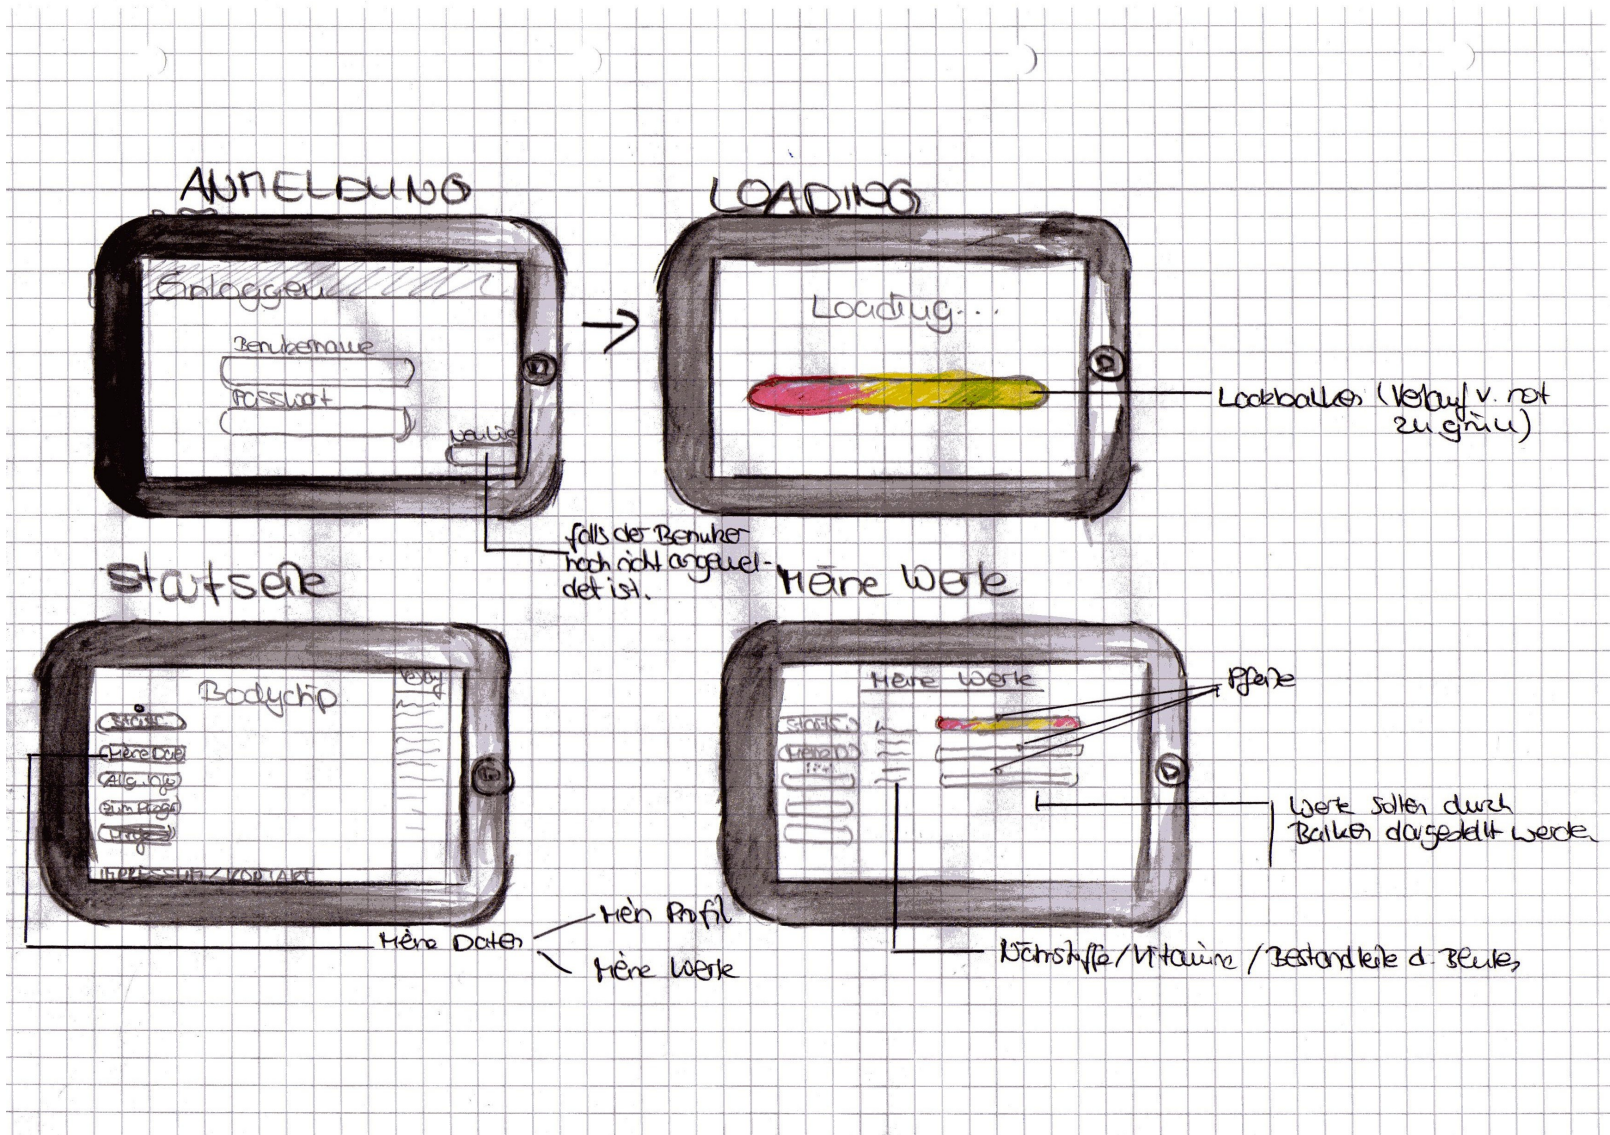 ANMELDUNG
Einloggen
Benutzername
Passwort
falls der Benutzer
noch nicht angemel-
det ist.
LOADING
Loading...
Ladebalken (Verlauf v. rot
zu grün)
Startseite
Bodychip
Starts.
Meine Dat
Allg. Info
Zum Progr
IMPRESSUM / KONTAKT
Meine Daten
Mein Profil
Meine Werte
Meine Werte
Meine Werte
Starts.
Meine D.
Pfeile
Werte sollen durch
Balken dargestellt werden
Nährstoffe / Vitamine / Bestandteile d. Blutes